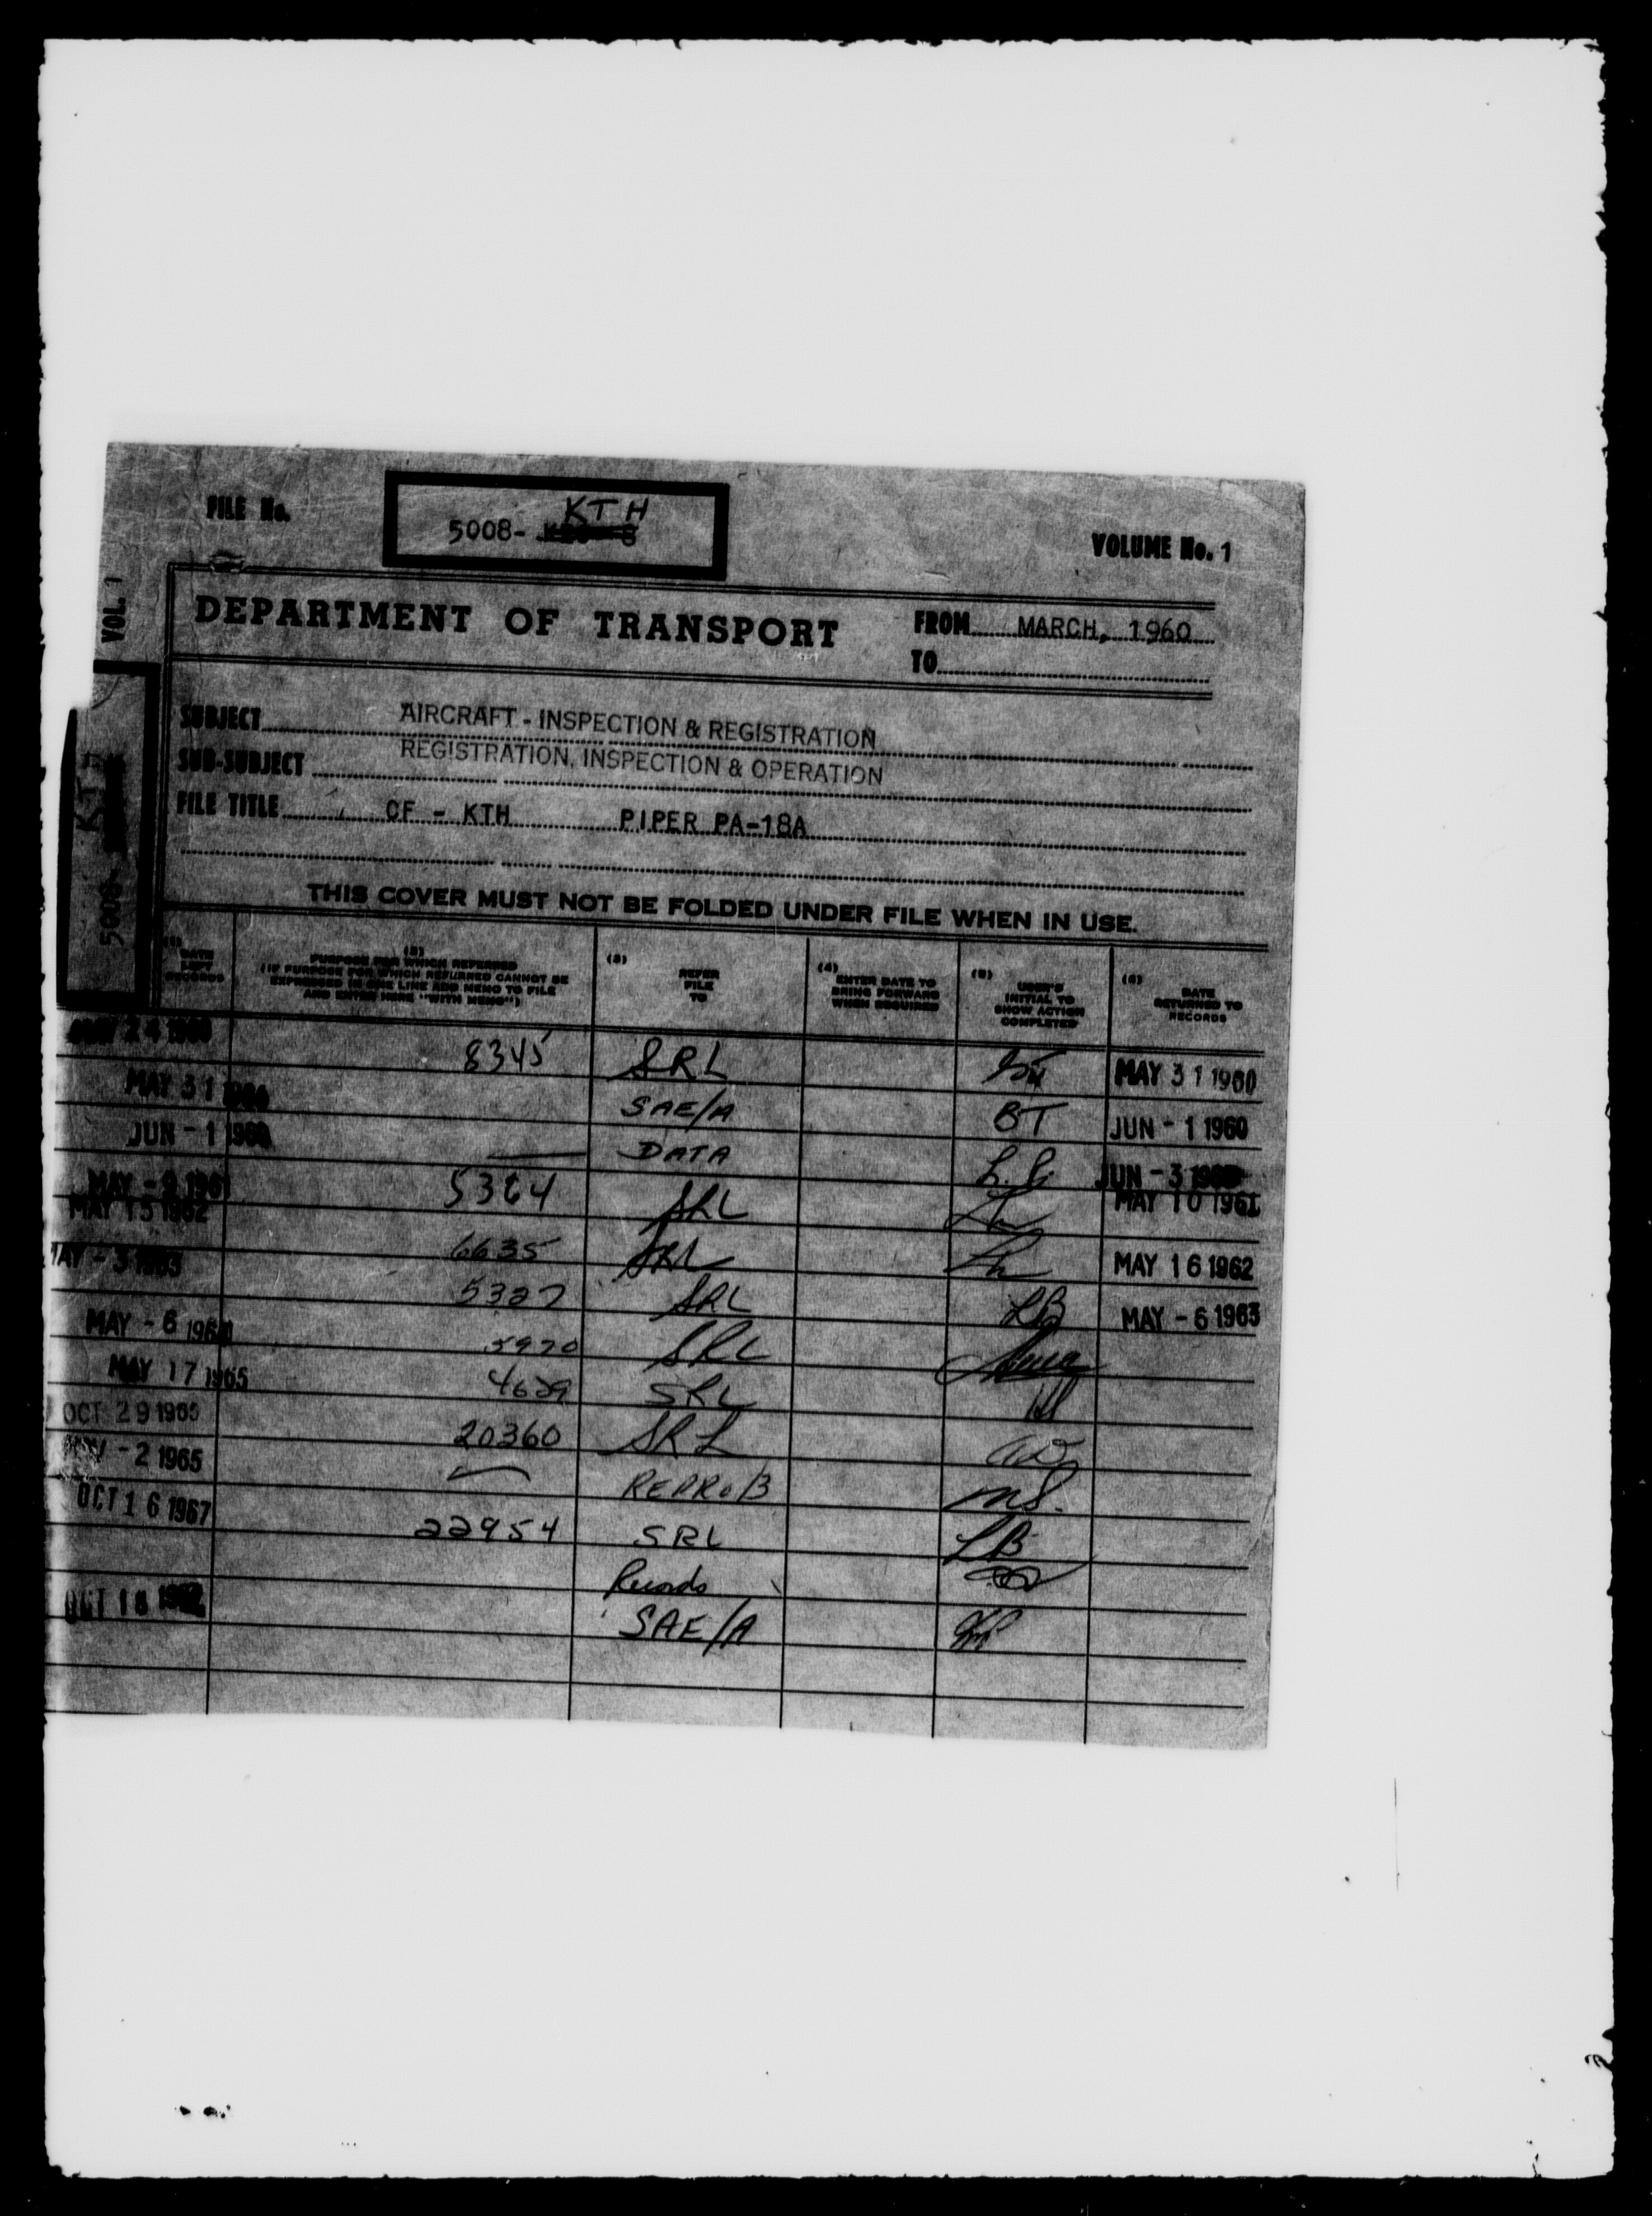 FILE No.
5008- KTH
VOLUME No. 1
VOL. 1
DEPARTMENT OF TRANSPORT
FROM MARCH, 1960
TO
SUBJECT AIRCRAFT - INSPECTION & REGISTRATION
SUB-SUBJECT REGISTRATION, INSPECTION & OPERATION
FILE TITLE CF - KTH PIPER PA-18A
5008- KTH
THIS COVER MUST NOT BE FOLDED UNDER FILE WHEN IN USE.
(1) DATE RECORDS
(2) PURPOSE FOR WHICH REFERRED
(IF PURPOSE FOR WHICH REFERRED CANNOT BE
EXPRESSED IN ONE LINE ADD MEMO TO FILE
AND ENTER HERE "WITH MEMO")
(3) REFER FILE TO
(4) ENTER DATE TO BRING FORWARD WHEN REQUIRED
(5) USER'S INITIAL TO SHOW ACTION COMPLETED
(6) DATE RETURNED TO RECORDS
MAY 24 1960 8345 SRL MAY 31 1960
MAY 31 SAE/A BT JUN - 1 1960
JUN - 1 1960 DATA L.G. JUN - 3
MAY - 9 1961 5364 SRL MAY 10 1961
MAY 15 1962 6635 SRL MAY 16 1962
MAY - 3 1963 5327 SRL LB MAY - 6 1963
MAY - 6 1964 5920 SRL
MAY 17 1965 4629 SRL
OCT 29 1965 20360 SRL
- 2 1965 REPRO/B MS.
OCT 16 1967 22954 SRL LB
Records
OCT 18 SAE/A